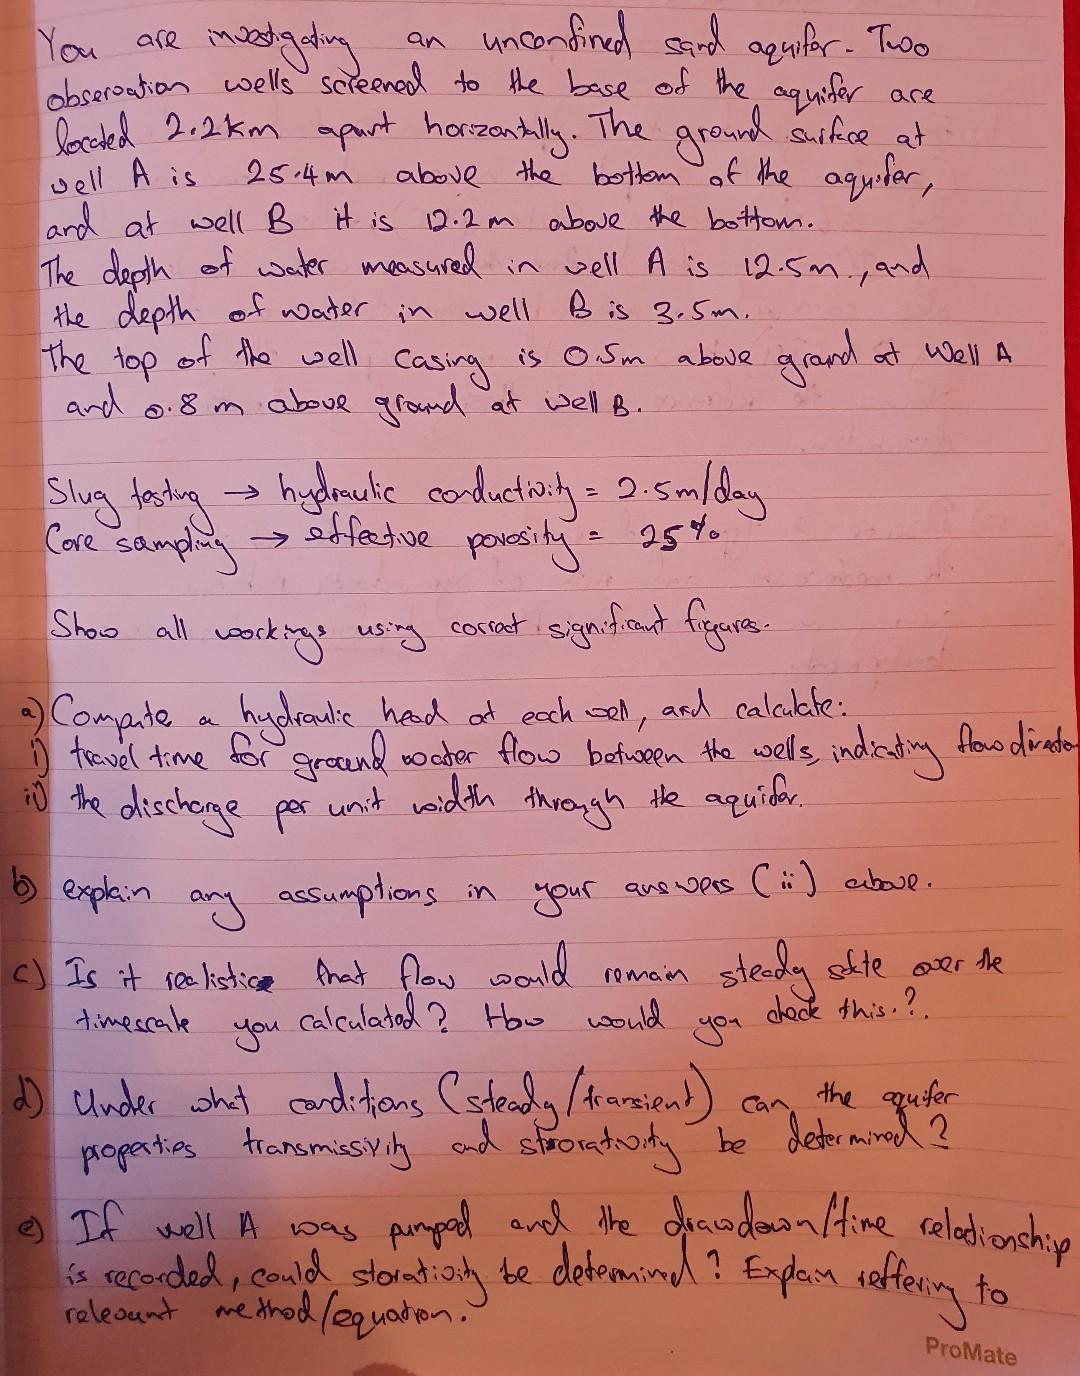 You are investigating an unconfined sand aquifer. Two
observation wells screened to the base of the aquifer are
located 2.2km apart horizontally. The ground surface at
well A is 25.4m above the bottom of the aquifer,
and at well B it is 12.2m above the bottom.
The depth of water measured in well A is 12.5m., and
the depth of water in well B is 3.5m.
The top of the well casing is 0.5m above ground at Well A
and 0.8 m above ground at well B.
Slug testing → hydraulic conductivity = 2.5m/day
Core sampling → effective porosity = 25%
Show all workings using correct significant figures.
a) Compute a hydraulic head at each well, and calculate:
i) travel time for ground water flow between the wells, indicating flow direction
ii) the discharge per unit width through the aquifer.
b) explain any assumptions in your answers (ii) above.
c) Is it realistic that flow would remain steady state over the
timescale you calculated? How would you check this.?.
d) Under what conditions (steady/transient) can the aquifer
properties transmissivity and storativity be determined?
e) If well A was pumped and the drawdown/time relationship
is recorded, could storativity be determined? Explain reffering to
relevant method/equation.
ProMate